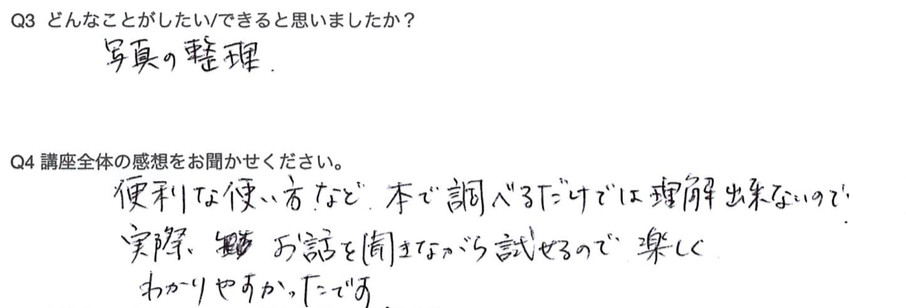 Q3 どんなことがしたい/できると思いましたか？
写真の整理.
Q4 講座全体の感想をお聞かせください。
便利な使い方など、本で調べるだけでは理解出来ないので、
実際、お話を聞きながら試せるので楽しく
わかりやすかったです